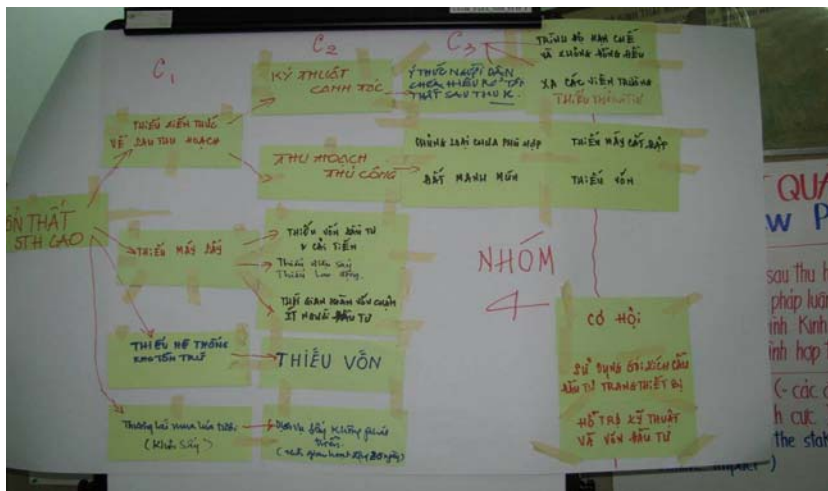 C1
C2
C3
TỔN THẤT
STH CAO
THIẾU KIẾN THỨC
VỀ SAU THU HOẠCH
THIẾU MÁY SẤY
THIẾU HỆ THỐNG
KHO TỒN TRỮ
Thương lái mua lúa tươi
(Khỏi sấy)
KỸ THUẬT
CANH TÁC
THU HOẠCH
THỦ CÔNG
THIẾU VỐN ĐẦU TƯ
& CẢI TIẾN
Thiếu điện sấy
Thiếu lao động.
THỜI GIAN HOÀN VỐN CHẬM
ÍT NGƯỜI ĐẦU TƯ
THIẾU VỐN
Dịch vụ sấy không phát
triển.
Ý THỨC NGƯỜI DÂN
CHƯA HIỂU RÕ TỔN
THẤT SAU THU H.
CHỦNG LOẠI CHƯA PHÙ HỢP
ĐẤT MANH MÚN
TRÌNH ĐỘ HẠN CHẾ
VÀ KHÔNG ĐỒNG ĐỀU
XA CÁC VIỆN TRƯỜNG
THIẾU THÔNG TIN
THIẾU MÁY CẮT, ĐẬP
THIẾU VỐN
NHÓM
4
CƠ HỘI
SỬ DỤNG GÓI KÍCH CẦU
ĐẦU TƯ TRANG THIẾT BỊ
HỖ TRỢ KỸ THUẬT
VÀ VỐN ĐẦU TƯ
QUA
W P
sau thu h
pháp luậ
inh Kinh
inh hợp
(- các
h cực
the stat
impact -)